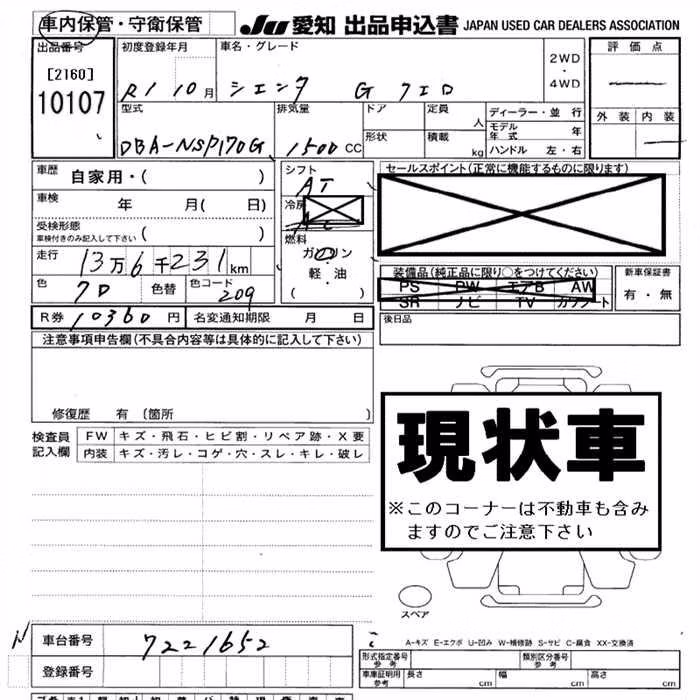 車内保管・守衛保管
JU 愛知 出品申込書 JAPAN USED CAR DEALERS ASSOCIATION
出品番号 初度登録年月 車名・グレード 評価点
[2160]
10107
R1 10月 シエンタ G
2WD・4WD
外装 内装
型式 排気量 ドア 定員 人 ディーラー・並行
モデル年式 年
DBA-NSP170G 1500 CC 形状 積載 kg ハンドル 左・右
車歴 自家用・( ) シフト AT セールスポイント(正常に機能するものに限ります)
車検 年 月( 日) 冷房
受検形態 車検付きのみ記入して下さい ( )
燃料 ガソリン
軽・油
( )
走行 13万6千231km
装備品(純品に限り○をつけてください) 新車保証書
PS PW エアB AW 有・無
SR ナビ TV カワシート
色 色替 色コード 209
R券 10360円 名変通知期限 月 日 後日品
注意事項申告欄(不具合内容等は具体的に記入して下さい)
修復歴 有 〔箇所 〕
現状車
※このコーナーは不動車も含み
ますのでご注意下さい
検査員記入欄 FW キズ・飛石・ヒビ割・リペア跡・X要
内装 キズ・汚レ・コゲ・穴・スレ・キレ・破レ
スペア
A-キズ E-エクボ U-凹み W-補修跡 S-サビ C-腐食 XX-交換済
N 車台番号 7221652
登録番号
形式指定番号 参考 類別区分番号 参考
車庫証明用 参考 長さ cm 幅 cm 高さ cm